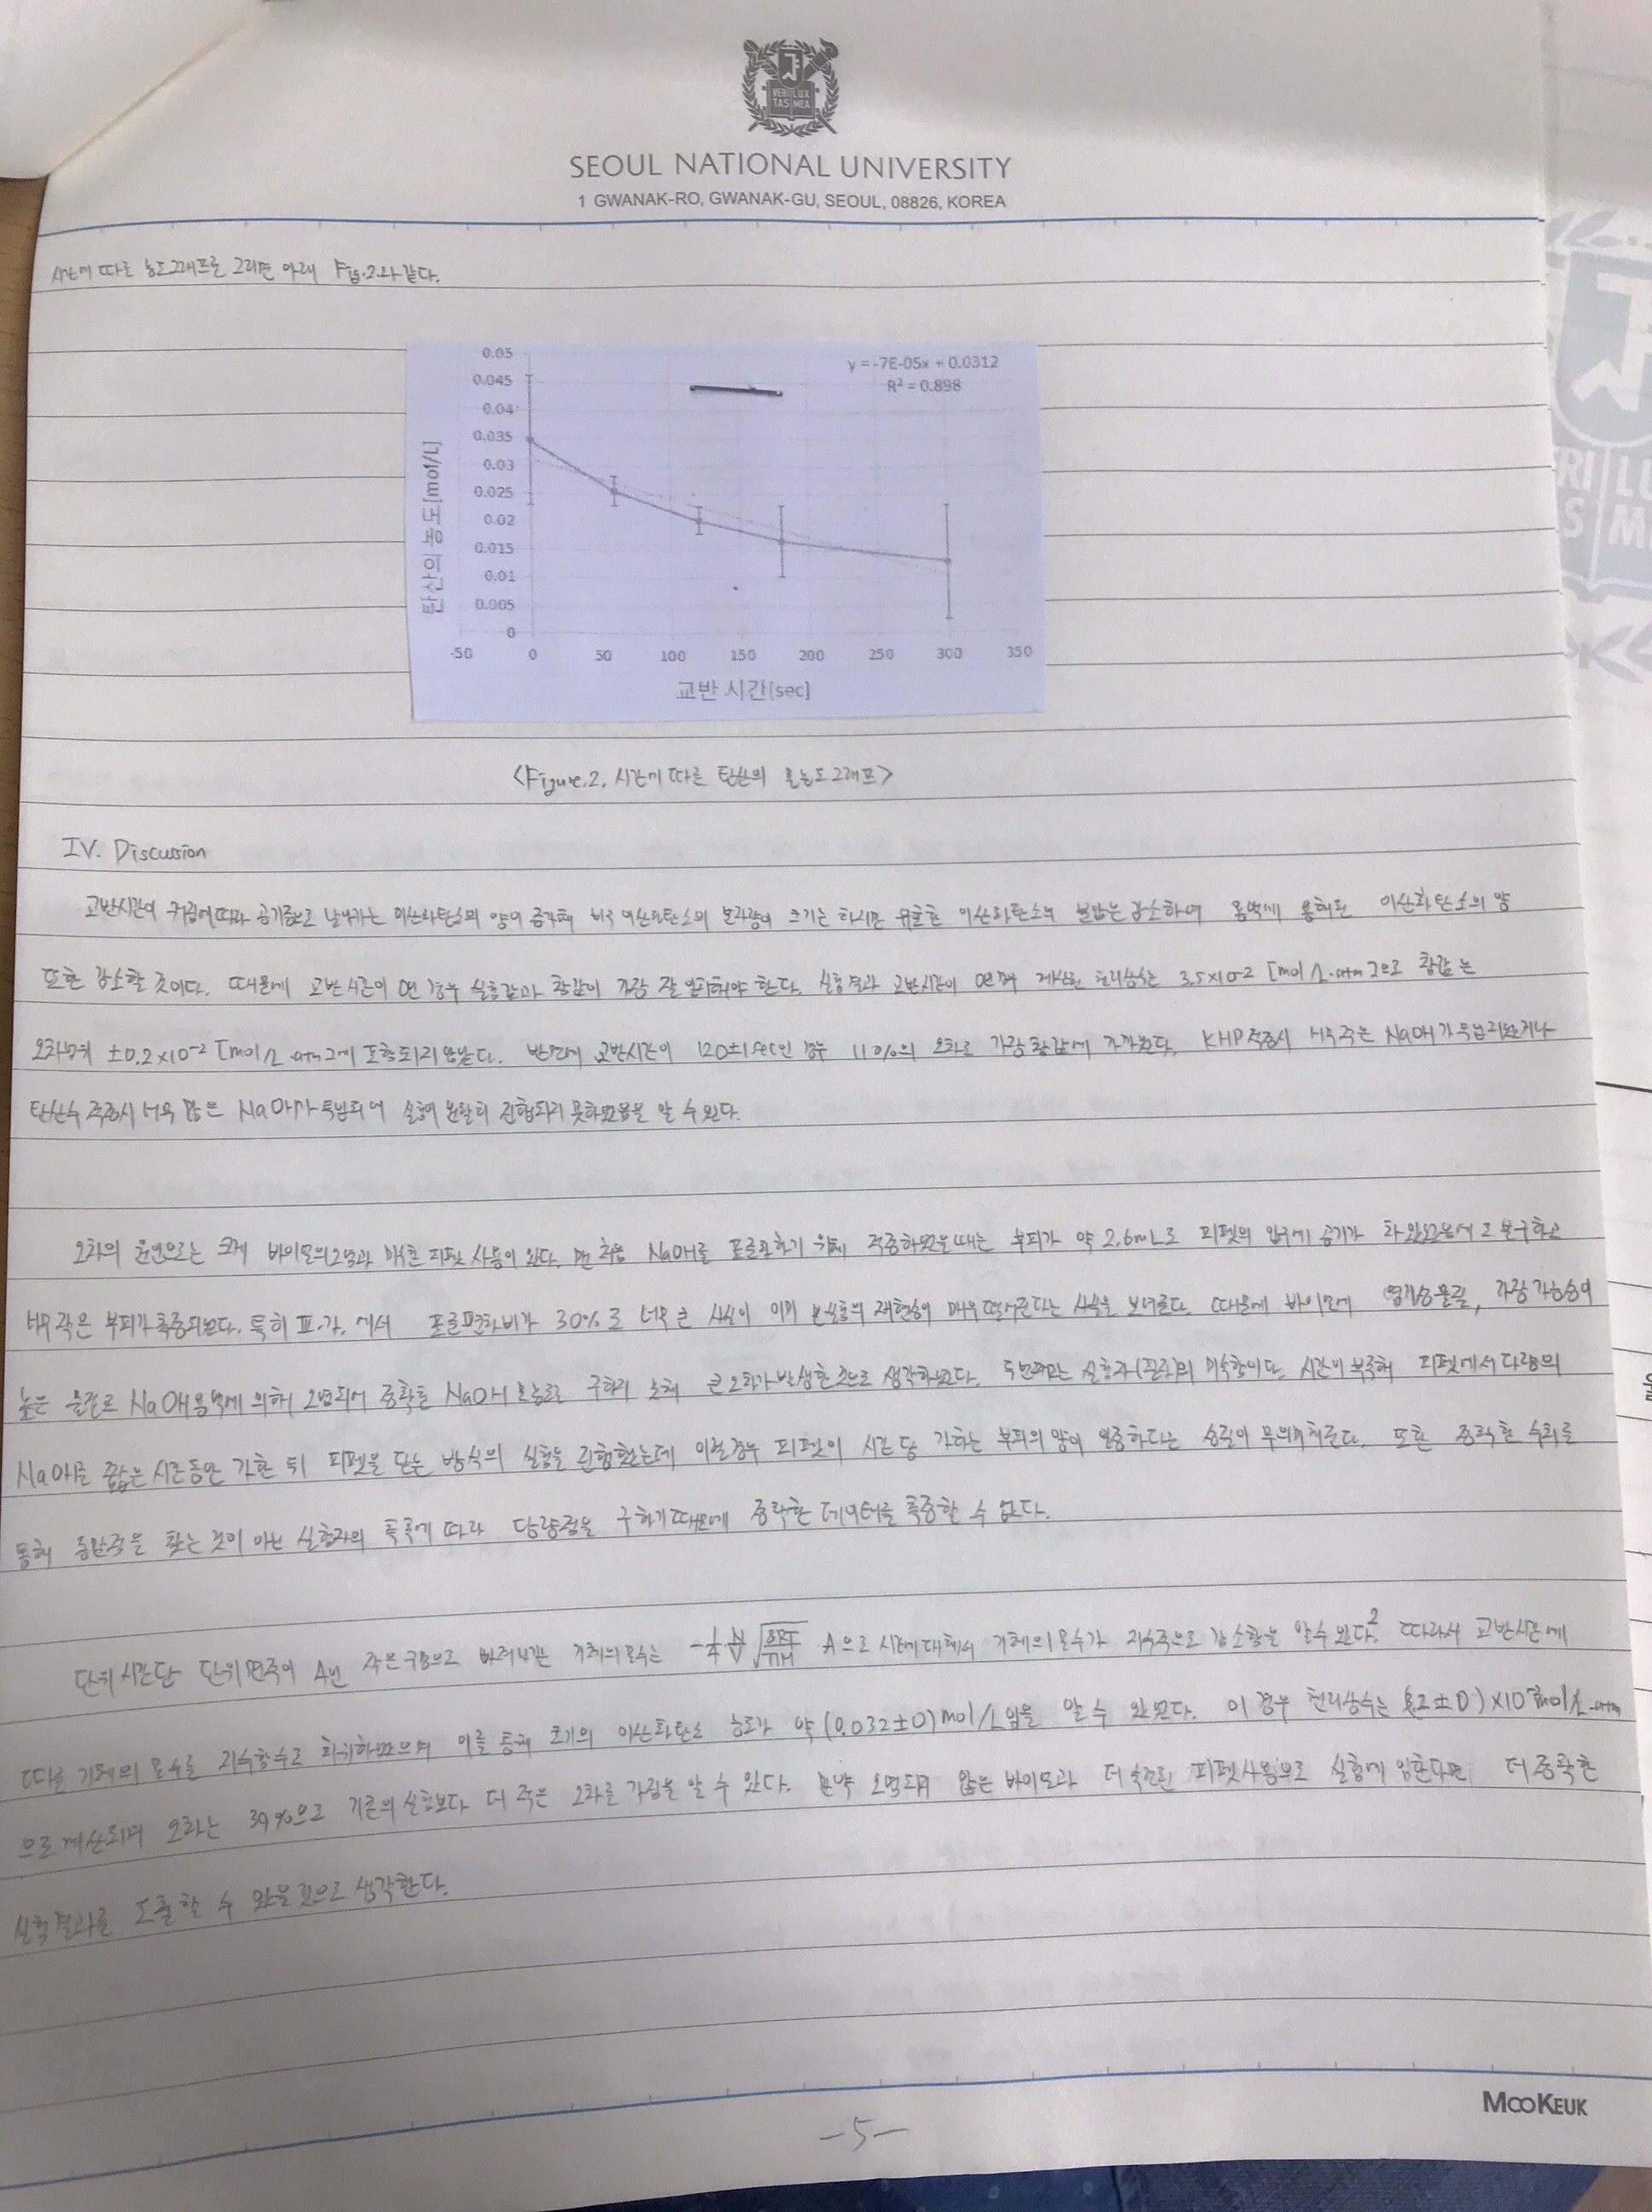 SEOUL NATIONAL UNIVERSITY
1 GWANAK-RO, GWANAK-GU, SEOUL, 08826, KOREA
시간에 따른 농도그래프를 그리면 아래 Fig.2.와 같다.
y = -7E-05x + 0.0312
R² = 0.898
0.05
0.045
0.04
0.035
0.03
0.025
0.02
0.015
0.01
0.005
0
탄산의 농도[mol/L]
-50 0 50 100 150 200 250 300 350
교반 시간[sec]
<Figure.2. 시간에 따른 탄산의 몰농도그래프>
IV. Discussion
교반시간이 커짐에 따라 공기중으로 날아가는 이산화탄소의 양이 증가해 비록 이산화탄소의 분자량이 크기는 하지만 이산화탄소의 분압은 감소하여 용액에 용해된 이산화탄소의 양
또한 감소할 것이다. 때문에 교반시간이 0인 경우 실험값과 참값이 가장 잘 일치해야 한다. 실험결과 교반시간이 0인때 계산된 헨리상수는 3.5×10-2 [mol/L·atm]으로 참값은
오차범위 ±0.2×10-2 [mol/L·atm]에 포함되지 않았다. 반면에 교반시간이 120±1sec인 경우 11%의 오차로 가장 참값에 가까웠다. KHP적정시 너무 적은 NaOH가 투입되었거나
탄산수 적정시 너무 많은 NaOH가 투입되어 실험이 원활히 진행되지 못하였음을 알 수 있다.
오차의 원인으로는 크게 바이알의 오염과 미숙한 피펫 사용이 있다. 맨 처음 NaOH를 표준화하기 위해 적정하였을때는 부피가 약 2.6mL로 피펫의 입구에 공기가 차있었음에도 불구하고
너무 작은 부피가 측정되었다. 특히 III.가. 에서 표준편차비가 30%로 너무 큰 사실이 이미 본실험의 재현성이 매우 떨어진다는 사실을 보여준다. 때문에 바이알에 염기성물질, 가장 가능성이
높은 물질로 NaOH용액에 의해 오염되어 정확한 NaOH 몰농도를 구하지 못해 큰 오차가 발생한 것으로 생각하였다. 두번째는 실험자(필자)의 미숙함이다. 시간이 부족해 피펫에서 다량의
NaOH를 짧은 시간동안 가한 뒤 피펫을 닫는 방식의 실험을 진행했는데 이럴경우 피펫이 시간 당 가하는 부피의 양이 일정하다는 성질이 무의미해준다. 또한 정확한 수치를
통해 종말점을 찾는 것이 아닌 실험자의 육쪽에 따라 당량점을 구하기때문에 정확한 데이터를 측정할 수 없다.
단위시간당 단위면적이 A인 작은구멍으로 빠져나가는 기체의 몰수는 -1/4 N/V √(8RT/πM) A으로 시간에 대해서 기체의 몰수가 지수적으로 감소함을 알수있다.² 따라서 교반시간에
따른 기체의 몰수를 지수함수로 회귀하였으며 이를 통해 초기의 이산화탄소 농도가 약 (0.032±0)mol/L임을 알 수 있었다. 이 경우 헨리상수는
으로 계산되며 오차는 39%으로 기존의 실험보다 더 작은 오차를 가짐을 알 수 있다. 만약 오염되지 않은 바이알과 더 숙련된 피펫사용으로 실험에 임한다면 더 정확한
실험결과를 도출할 수 있을것으로 생각한다.
MOOKEUK
-5-